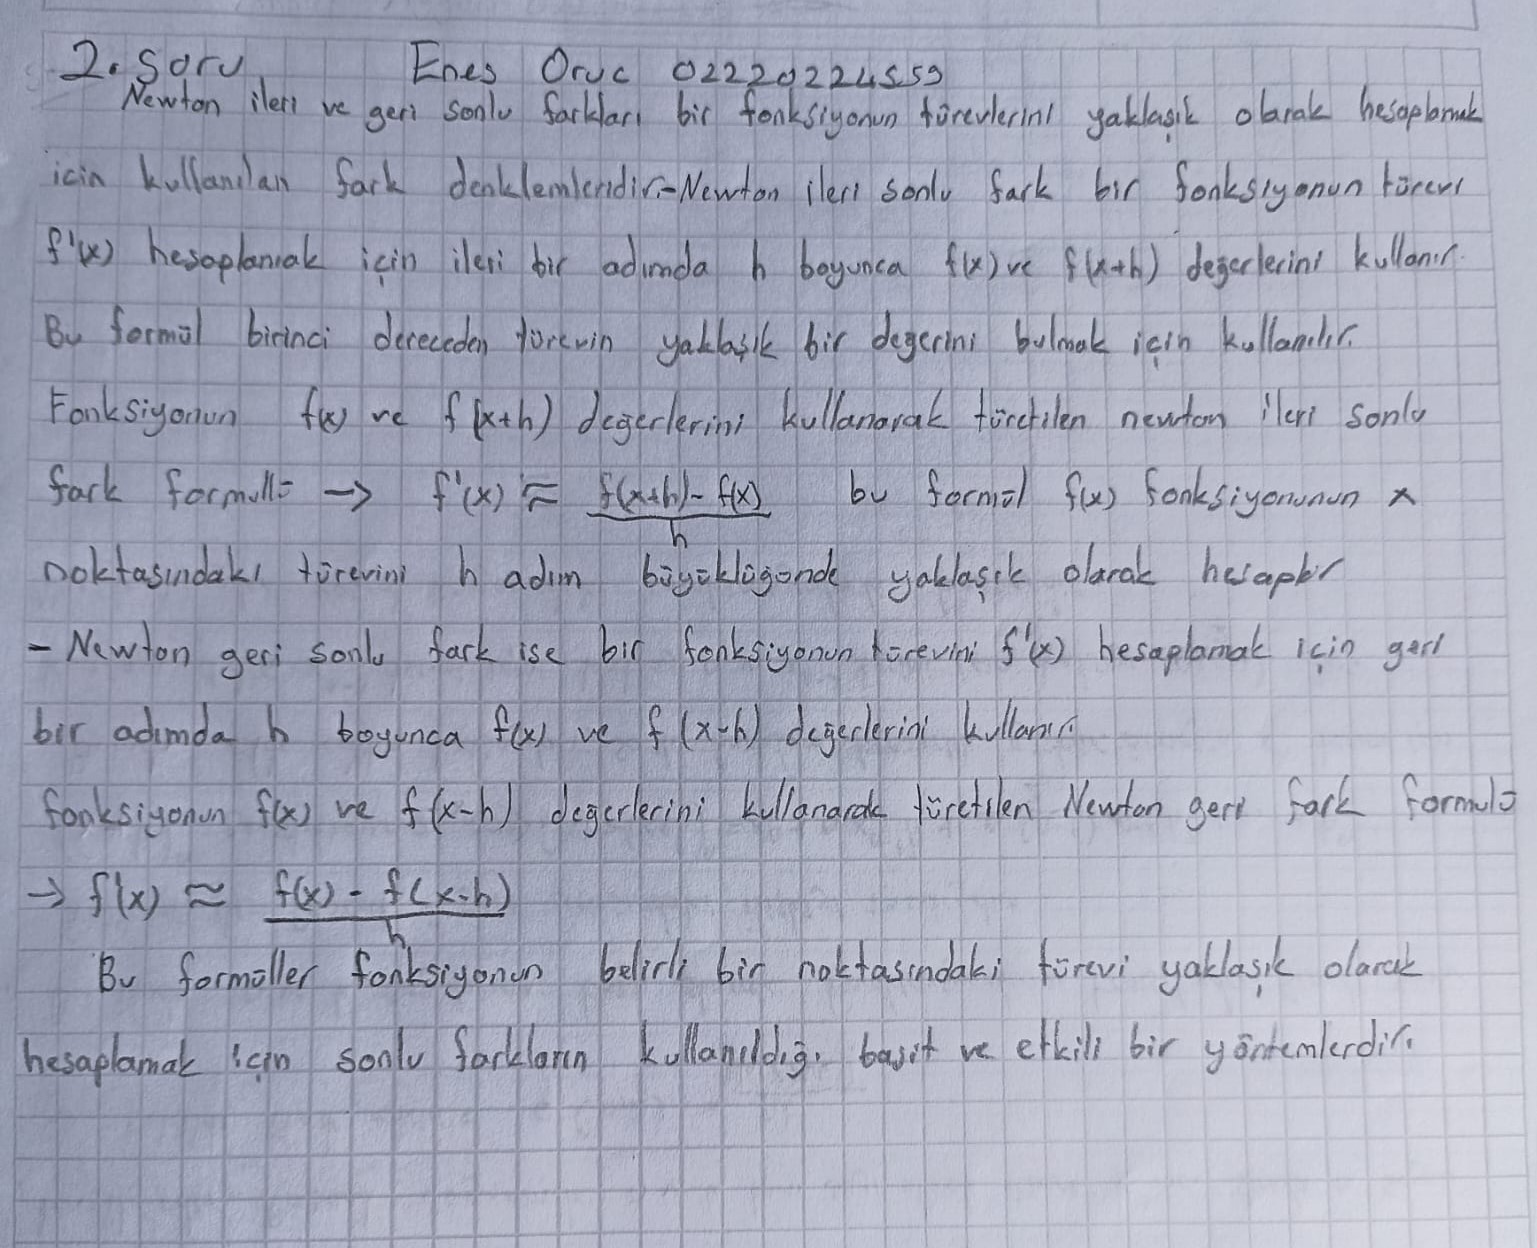 2. Soru Enes Oruc 02220224559
Newton ileri ve geri sonlu farkları bir fonksiyonun türevlerini yaklaşık olarak hesaplamak
icin kullanılan fark denklemleridir.-Newton ileri sonlu fark bir fonksiyonun türevi
f'(x) hesaplamak için ileri bir adımda h boyunca f(x) ve f(x+h) değerlerini kullanır.
Bu formül birinci dereceden türevin yaklaşık bir degerini bulmak için kullanılır.
Fonksiyonun f(x) ve f(x+h) degerlerini kullanarak türetilen newton ileri sonlu
fark formülü → f'(x) ≈ f(x+h) - f(x) / h bu formül f(x) fonksiyonunun x
noktasındaki türevini h adım büyüklügünde yaklaşık olarak hesaplar
- Newton geri sonlu fark ise bir fonksiyonun türevini f'(x) hesaplamak için geri
bir adımda h boyunca f(x) ve f(x-h) degerlerini kullanır.
fonksiyonun f(x) ve f(x-h) degerlerini kullanarak türetilen Newton geri fark formülü
→ f'(x) ≈ f(x) - f(x-h) / h
Bu formüller fonksiyonun belirli bir noktasındaki türevi yaklaşık olarak
hesaplamak için sonlu farkların kullanıldığı basit ve etkili bir yöntemlerdir.